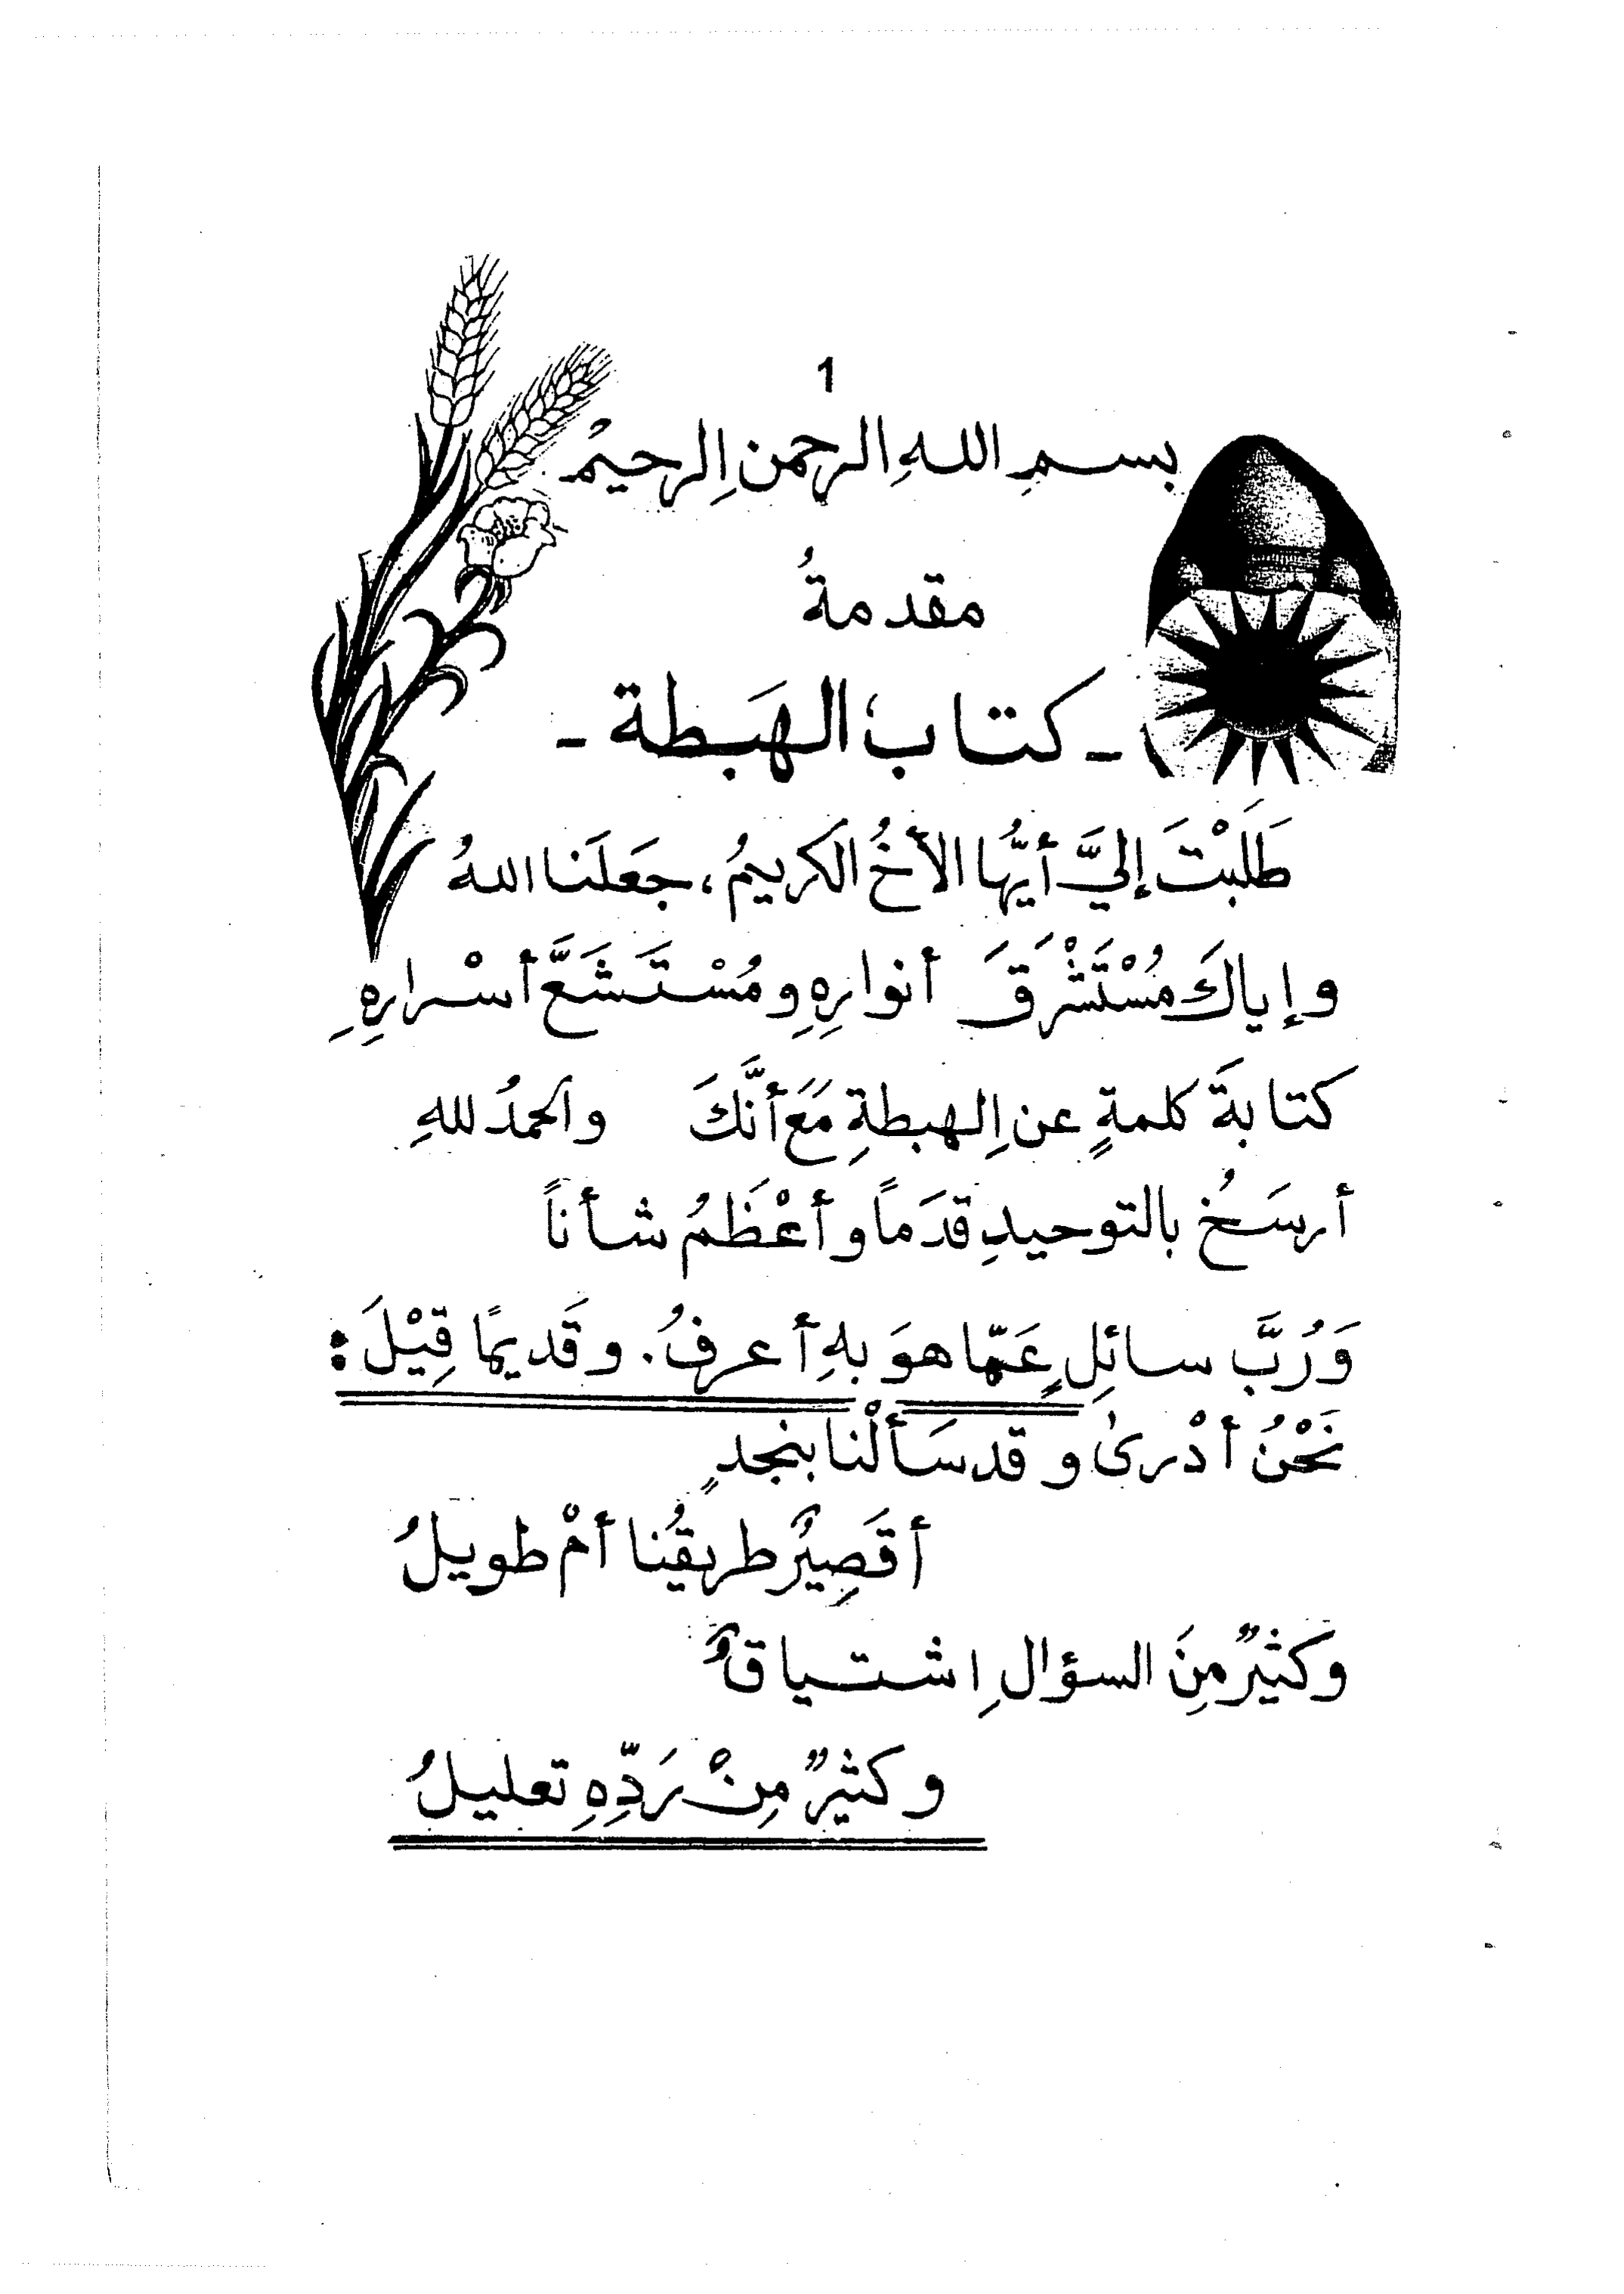 1
بسمِ اللهِ الرحمنِ الرحيمْ
مقدمةُ
- كتاب الهَبَطة -
طَلَبْتَ إليَّ أيُّها الأخُ الكريمُ، جَعَلَنا اللهُ
وإياكَ مُسْتَشْرِقَ أنوارِهِ ومُسْتَشَعَّ أسْرارِهِ
كتابةَ كلمةٍ عن الهبطةِ مَعَ أنَّكَ والحمدُ للهِ
أرسَخُ بالتوحيدِ قدَماً وأعْظَمُ شأناً
وَرُبَّ سائلٍ عَمّا هوَ بهِ أعرفُ. وقَديمًا قِيْلَ:
نَحْنُ أدْرىٰ وقد سَألْنا بنجدٍ
أقَصِيرٌ طريقُنا أمْ طويلُ
وكثيرٌ مِنَ السؤالِ اشتياقٌ
وكثيرٌ مِنْ رَدِّهِ تعليلُ